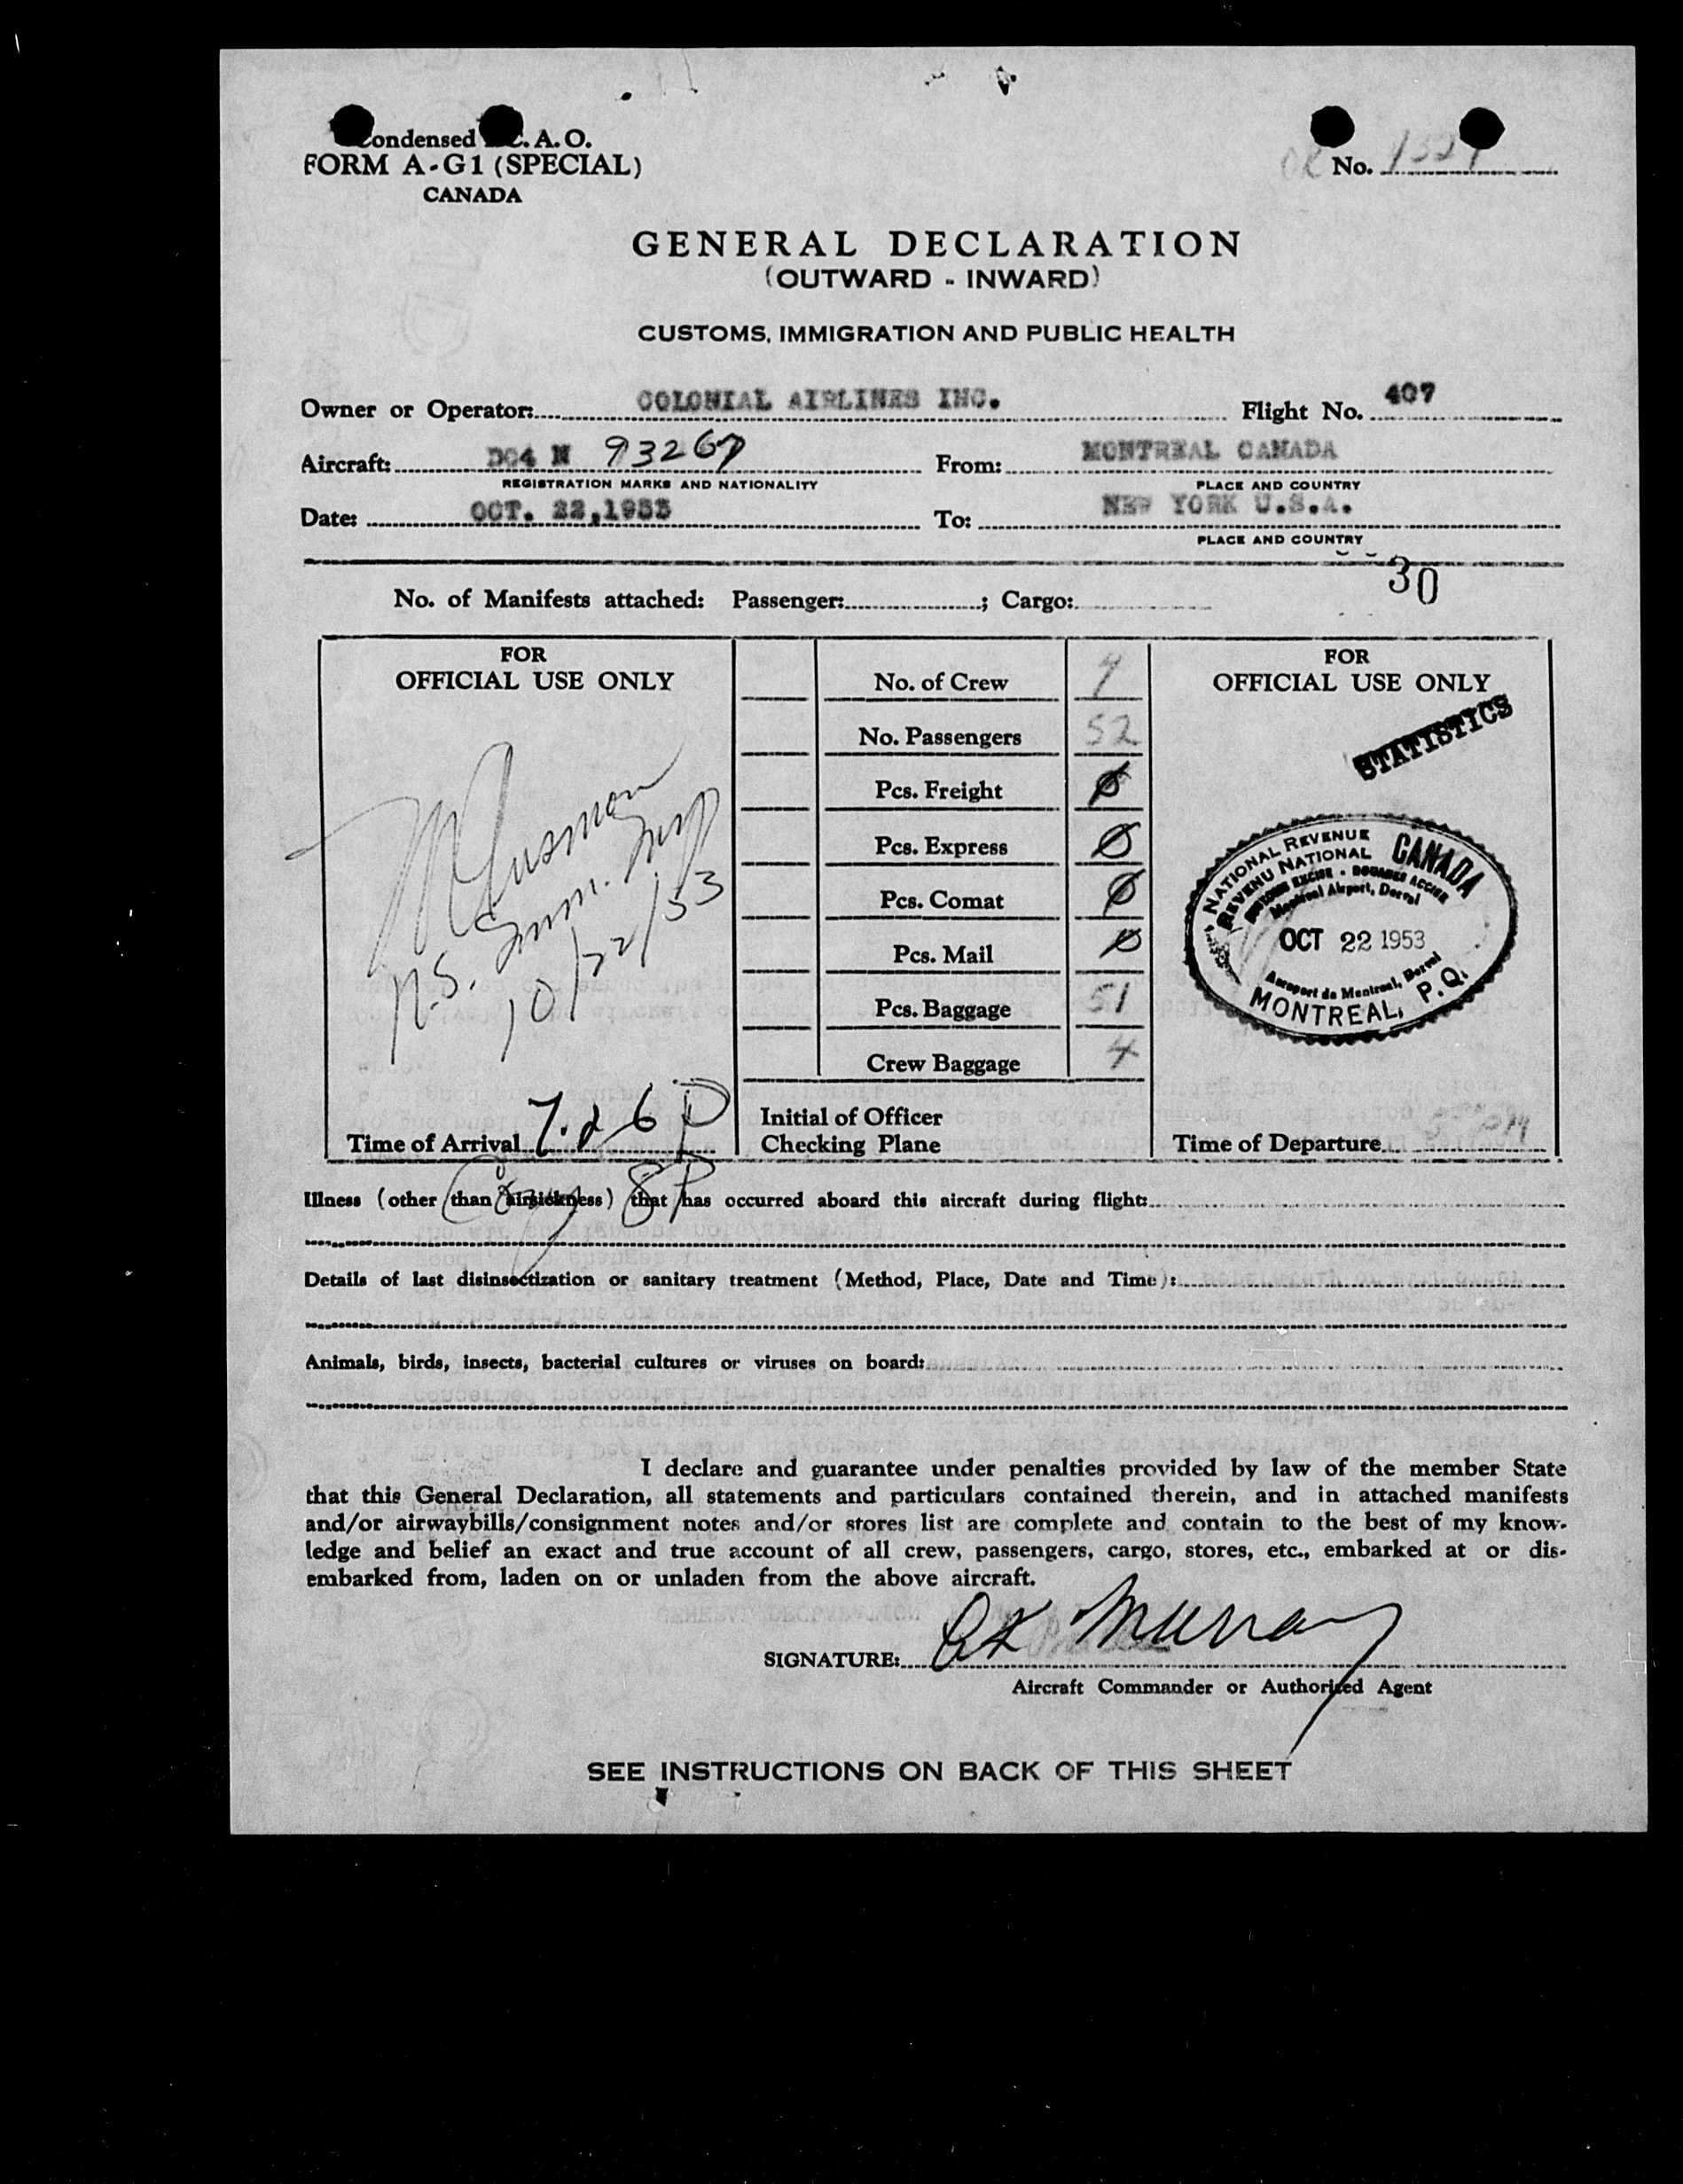 Condensed I.C.A.O.
FORM A-G1 (SPECIAL)
CANADA
No.
GENERAL DECLARATION
(OUTWARD - INWARD)
CUSTOMS, IMMIGRATION AND PUBLIC HEALTH
Owner or Operator: COLONIAL AIRLINES INC. Flight No. 407
Aircraft: DC4 N 93267 From: MONTREAL CANADA
REGISTRATION MARKS AND NATIONALITY PLACE AND COUNTRY
Date: OCT. 22,1953 To: NEW YORK U.S.A.
PLACE AND COUNTRY
30
No. of Manifests attached: Passenger: ; Cargo:
FOR
OFFICIAL USE ONLY
U.S. Imm. Insp
10/22/53
Time of Arrival 7.26 P
No. of Crew 4
No. Passengers 52
Pcs. Freight 0
Pcs. Express 0
Pcs. Comat 0
Pcs. Mail 0
Pcs. Baggage 51
Crew Baggage 4
Initial of Officer
Checking Plane
FOR
OFFICIAL USE ONLY
STATISTICS
NATIONAL REVENUE CANADA
REVENU NATIONAL
CUSTOMS EXCISE - DOUANES ACCISE
Montreal Airport, Dorval
OCT 22 1953
Aeroport de Montreal, Dorval
MONTREAL, P.Q.
Time of Departure
Illness (other than airsickness) that has occurred aboard this aircraft during flight:
Details of last disinsectization or sanitary treatment (Method, Place, Date and Time):
Animals, birds, insects, bacterial cultures or viruses on board:
I declare and guarantee under penalties provided by law of the member State
that this General Declaration, all statements and particulars contained therein, and in attached manifests
and/or airwaybills/consignment notes and/or stores list are complete and contain to the best of my know-
ledge and belief an exact and true account of all crew, passengers, cargo, stores, etc., embarked at or dis-
embarked from, laden on or unladen from the above aircraft.
SIGNATURE: Murray
Aircraft Commander or Authorized Agent
SEE INSTRUCTIONS ON BACK OF THIS SHEET